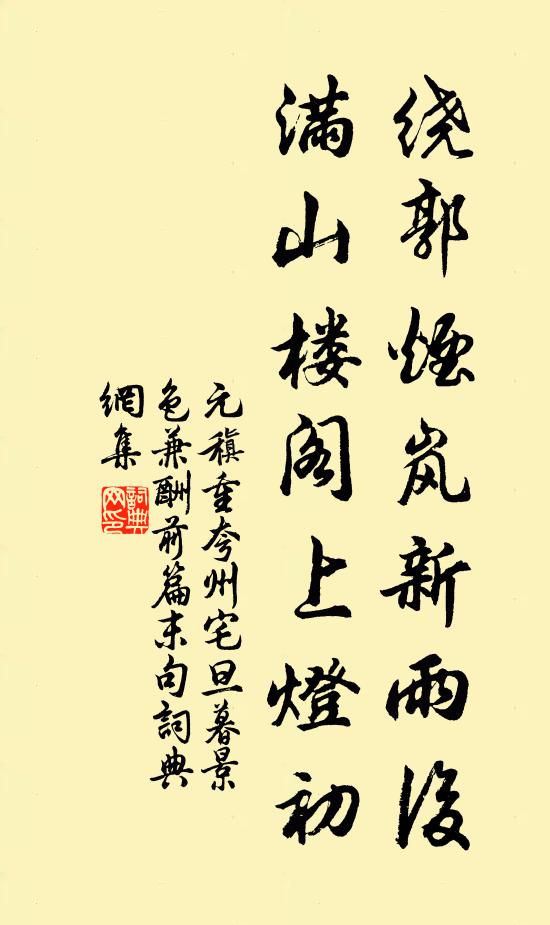 绕郭煙岚新雨後
满山楼阁上燈初
元稹重夸州宅旦暮景
色兼酬前篇末句詞典
網集
詞典
网印